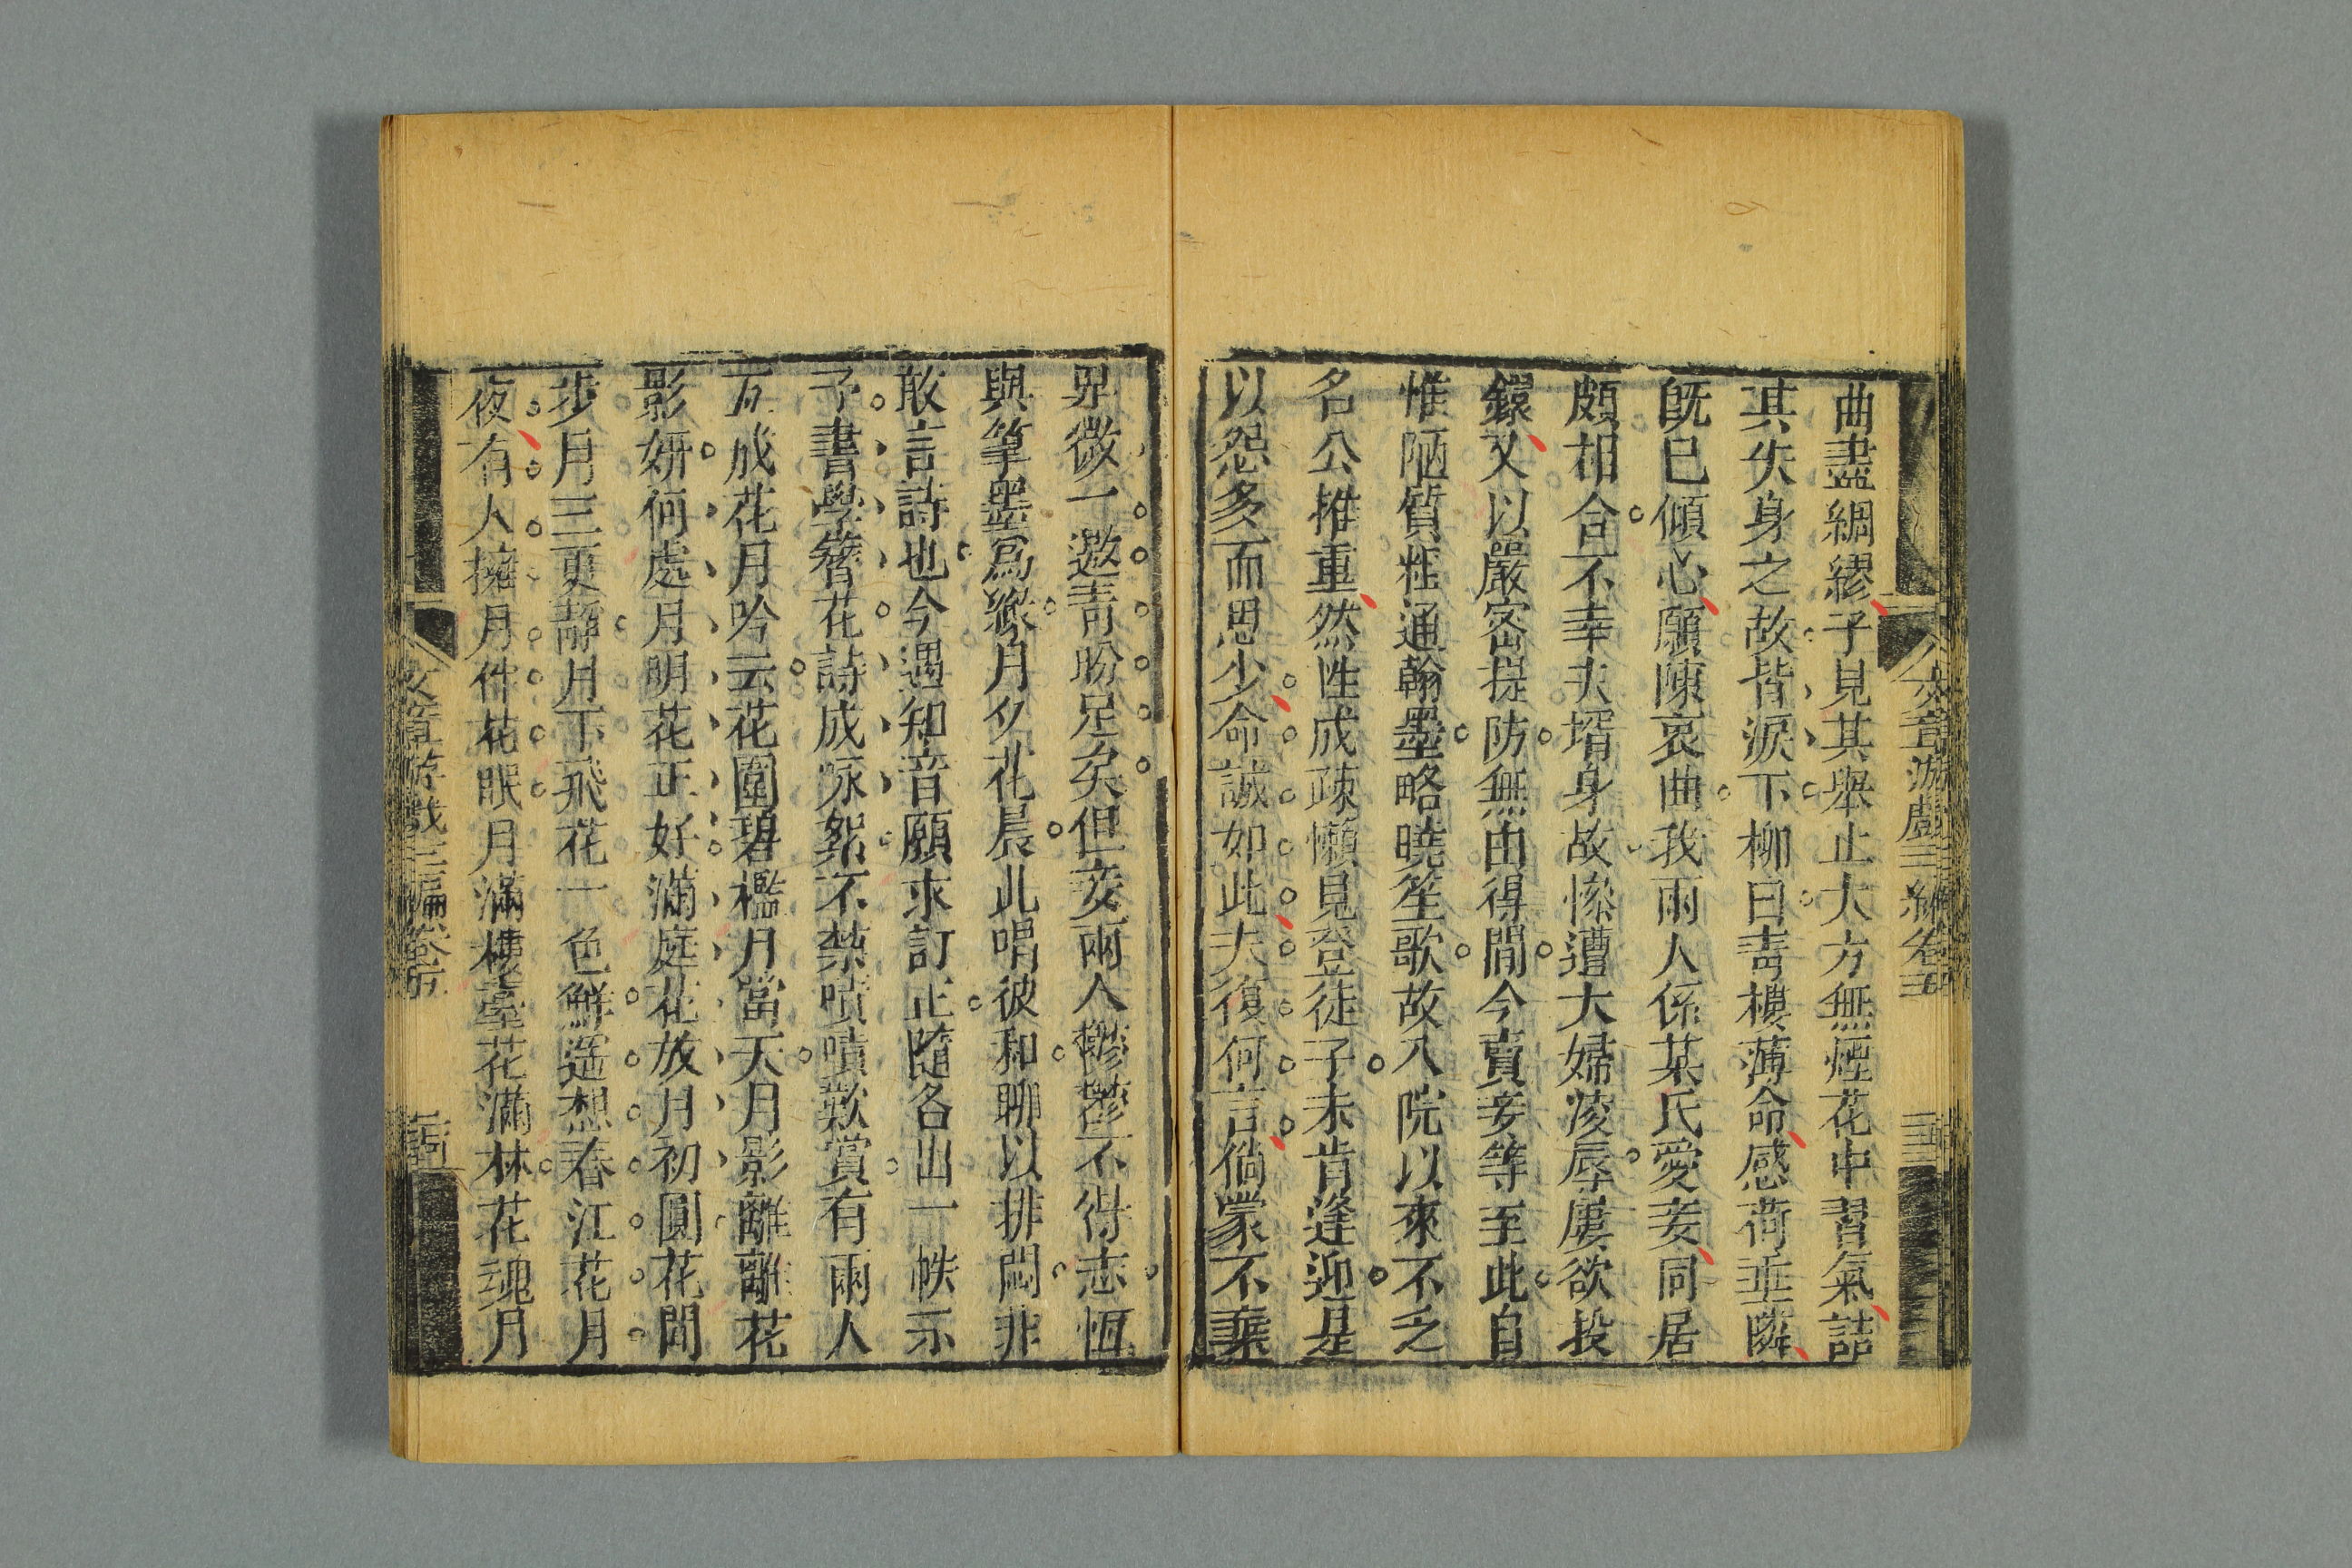 文章游戲三編卷五
三
曲盡綢繆子見其舉止大方無煙花中習氣詰
其失身之故皆淚下柳曰青樓薄命感荷垂隣
既已傾心願陳衷曲我兩人係某氏愛妾同居
頗相合不幸夫壻身故慘遭大婦凌辱屢欲投
鐶又以嚴密提防無由得間今賣妾等至此自
惟陋質性通翰墨略曉笙歌故入院以來不乏
名公推重然性成疎懶見登徒子未肯逢迎是
以怨多而恩少命誠如此夫復何言倘蒙不棄
畀微一邀青盼足矣但妾兩人鬱鬱不得志恆
與筆墨爲緣月夕花晨此唱彼和聊以排悶非
敢言詩也今遇知音願求訂正隨各出一帙示
予書學簪花詩成咏絮不禁嘖嘖歎賞有兩人
互成花月吟云花圍碧檻月當天月影離離花
影妍何處月明花正好滿庭花放月初圓花間
步月三更靜月下飛花一色鮮遥想春江花月
夜有人擁月伴花眠月滿樓臺花滿林花魂月
文章游戲三編卷五